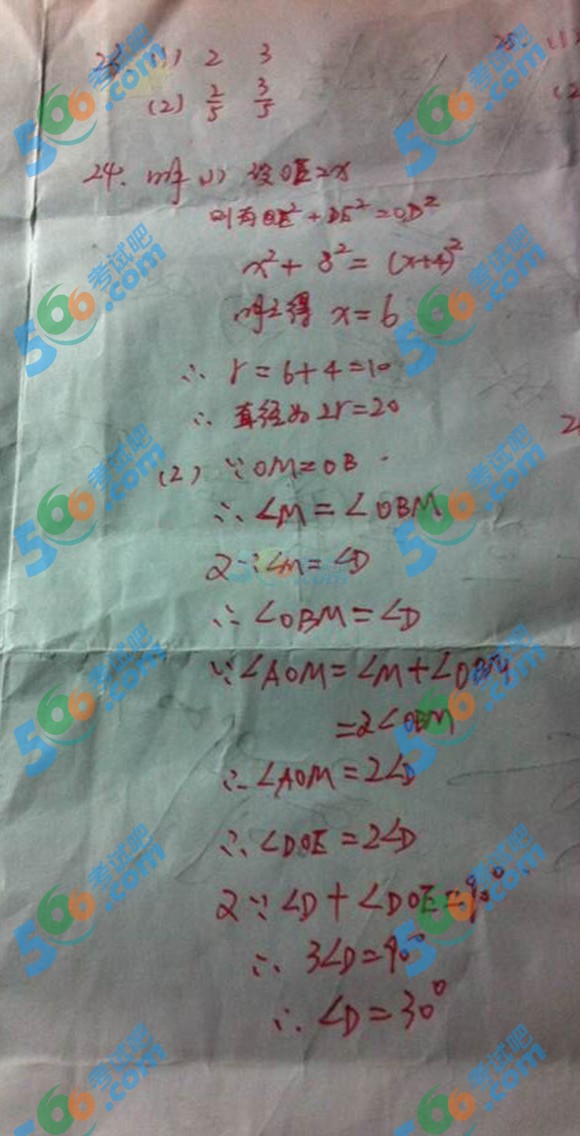 23. (1) 2 3
(2) 2/5 3/5
24. 解 (1) 设OE=x
则有OE²+DE²=OD²
x²+8²=(x+4)²
解之得 x=6
∴ r=6+4=10
∴ 直径为2r=20
(2) ∵OM=OB
∴∠M=∠OBM
又∵∠M=∠D
∴∠OBM=∠D
∵∠AOM=∠M+∠OBM
=2∠OBM
∴∠AOM=2∠D
∴∠DOE=2∠D
又∵∠D+∠DOE=90°
∴ 3∠D=90°
∴ ∠D=30°
25. (1)
(2
566考试吧
.com